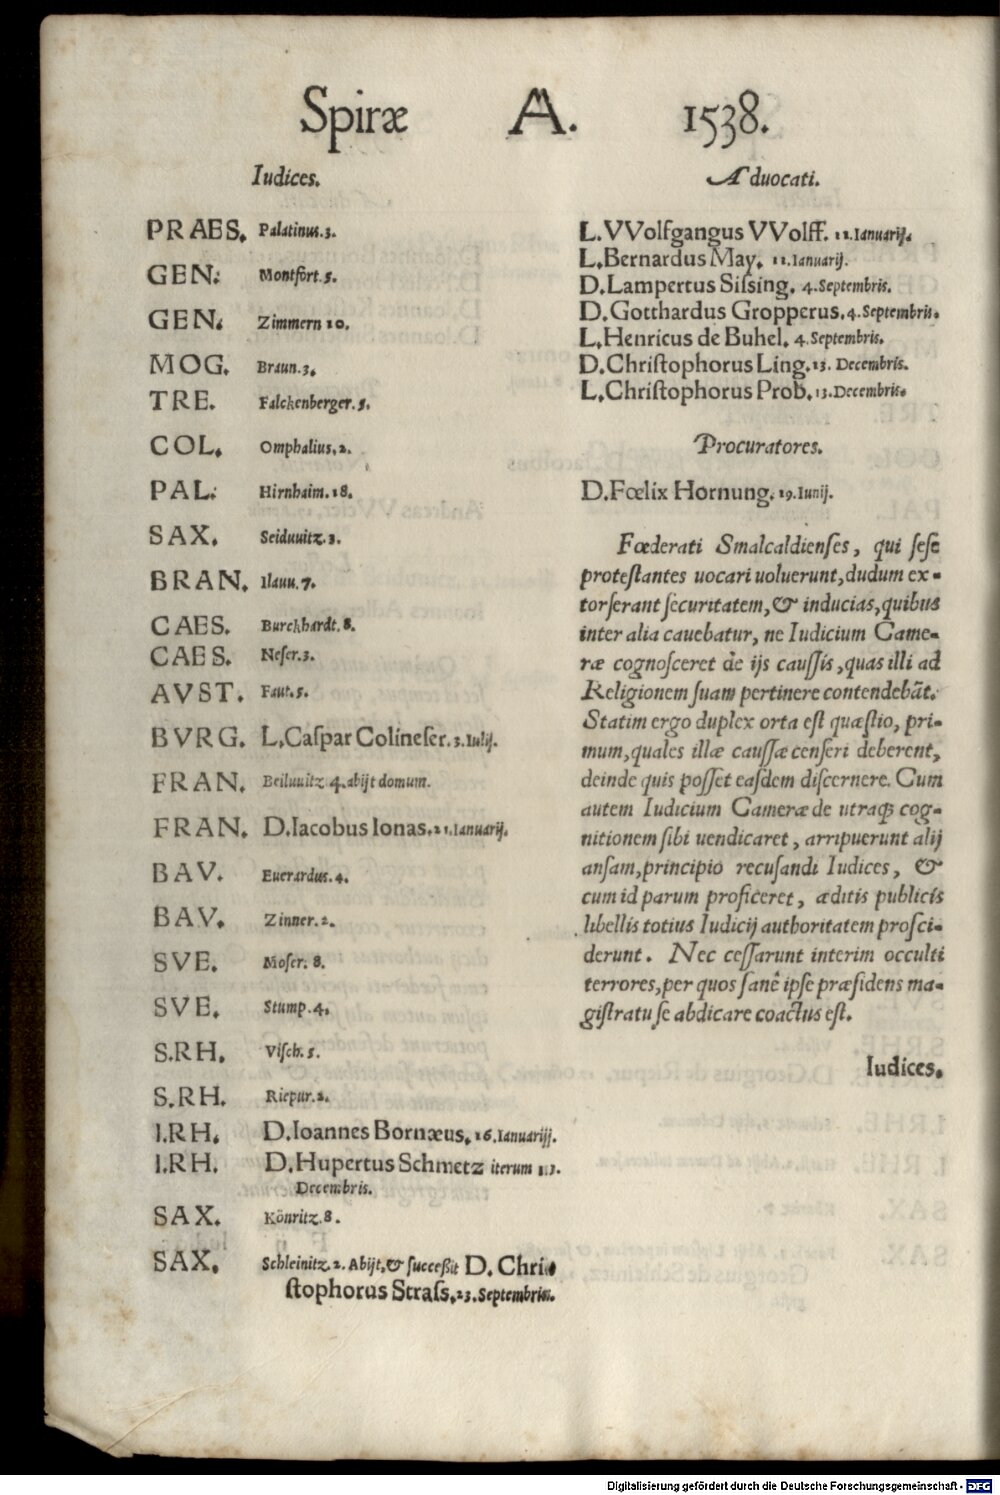 Spiræ A. 1538.
Iudices.
PRAES. Palatinus.3.
GEN: Montfort.5.
GEN. Zimmern 10.
MOG. Braun.3.
TRE. Falckenberger.5.
COL. Omphalius.2.
PAL: Hirnhaim.18.
SAX. Seiduuitz.3.
BRAN. Ilauu.7.
CAES. Burckhardt.8.
CAES. Neser.3.
AVST. Faut.5.
BVRG. L.Caſpar Colineſer.3.Iulij.
FRAN. Beiluuitz 4.abijt domum.
FRAN. D.Iacobus Ionas.21.Ianuarij.
BAV. Euerardus.4.
BAV. Zinner.2.
SVE. Moſer.8.
SVE. Stump.4.
S.RH. Viſch.5.
S.RH. Riepur.2.
I.RH. D.Ioannes Bornæus.16.Ianuarij.
I.RH. D.Hupertus Schmetz iterum 13.
Decembris.
SAX. Könritz.8.
SAX. Schleinitz.2. Abijt,& ſucceßit D. Chri-
ſtophorus Straſs.23.Septembris.
Aduocati.
L.VVolfgangus VVolff. 11.Ianuarij.
L.Bernardus May. 11.Ianuarij.
D.Lampertus Siſsing. 4.Septembris.
D.Gotthardus Gropperus.4.Septembris.
L.Henricus de Buhel. 4.Septembris.
D.Chriſtophorus Ling.13. Decembris.
L.Chriſtophorus Prob.13.Decembris.
Procuratores.
D.Fœlix Hornung.19.Iunij.
Fœderati Smalcaldienſes, qui ſeſe
proteſtantes uocari uoluerunt,dudum ex-
torſerant ſecuritatem,& inducias,quibus
inter alia cauebatur, ne Iudicium Came-
ræ cognoſceret de ijs cauſſis,quas illi ad
Religionem ſuam pertinere contendebãt.
Statim ergo duplex orta eſt quæſtio, pri-
mum,quales illæ cauſſæ cenſeri deberent,
deinde quis poſſet eaſdem diſcernere. Cum
autem Iudicium Cameræ de utraq; cog-
nitionem ſibi uendicaret, arripuerunt alij
anſam,principio recuſandi Iudices, &
cum id parum proficeret, æditis publicis
libellis totius Iudicij authoritatem proſci-
derunt. Nec ceſſarunt interim occulti
terrores,per quos ſanè ipſe præſidens ma-
giſtratu ſe abdicare coactus eſt.
Iudices.
Digitalisierung gefördert durch die Deutsche Forschungsgemeinschaft - DFG